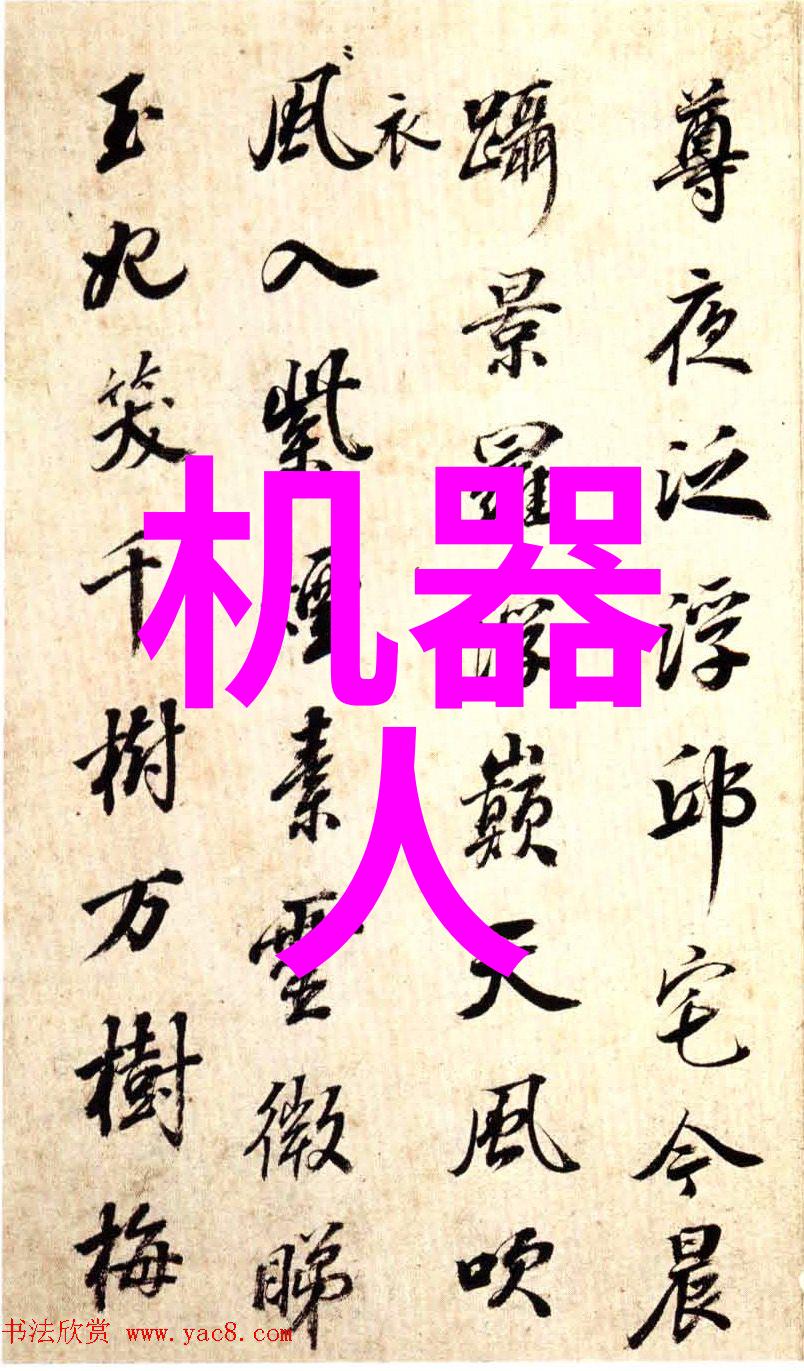 尊夜泛浮邱宅今晨
躡景羅浮巔天風吹
衣
風〻入紫煙素靈微睇
玉妃笑千樹万樹梅
机器
人
书法欣赏 www.yac8.com